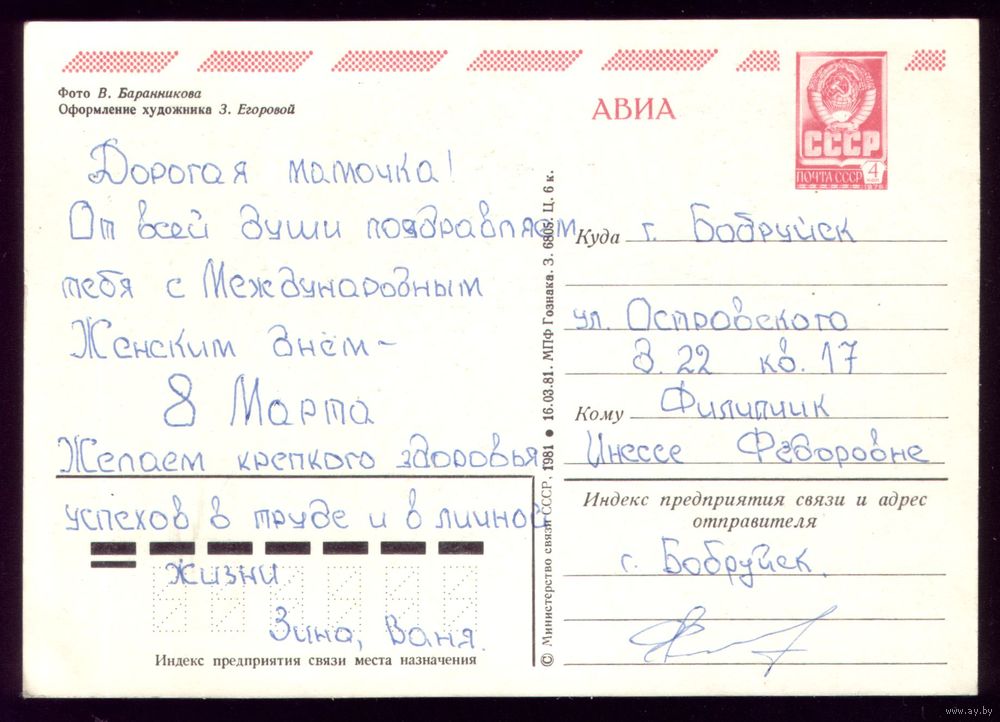 Фото В. Баранникова
Оформление художника З. Егоровой
АВИА
СССР
ПОЧТА СССР
4
1976
Дорогая мамочка!
От всей души поздравляем
тебя с Международным
Женским днём –
8 Марта
Желаем крепкого здоровья
успехов в труде и в личной
жизни
Зина, Ваня.
Индекс предприятия связи места назначения
© Министерство связи СССР, 1981 ● 16.03.81. МПФ Гознака. З. 6805. Ц. 6 к.
Куда г. Бобруйск
ул. Островского
д. 22 кв. 17
Кому Филипчик
Инессе Фёдоровне
Индекс предприятия связи и адрес
отправителя
г. Бобруйск.
www.ay.by